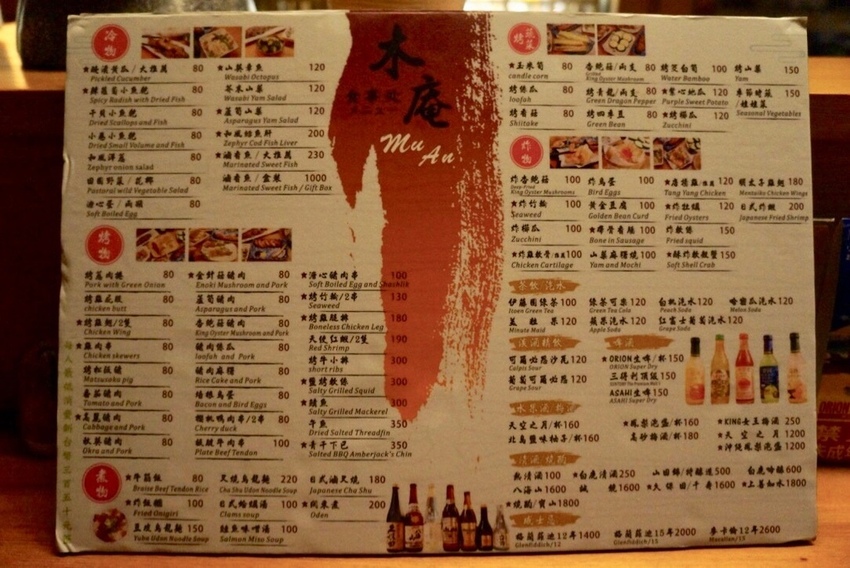 冷物
醃漬黃瓜/大推薦 80
Pickled Cucumber
80
Spicy Radish with Dried Fish
干貝小魚乾 80
Dried Scallops and Fish
小卷小魚乾 80
Dried Small Volume and Fish
和風洋蔥 80
Zephyr onion salad
田園野菜/ 80
Pastoral wild Vegetable Salad
溏心蛋/兩顆 80
Soft Boiled Egg
★山葵章魚 120
Wasabi Octopus
芥末山藥 120
Wasabi Yam Salad
★蘆筍山藥 120
Asparagus Yam Salad
★和風鱈魚肝 200
Zephyr Cod Fish Liver
★滷香魚/大推薦 230
Marinated Sweet Fish
滷香魚/盒裝 1000
Marinated Sweet Fish / Gift Box
烤物
烤蔥肉捲 80
Pork with Green Onion
烤雞屁股 80
chicken butt
★烤雞翅/2隻 80
Chicken Wing
★雞肉串 80
Chicken skewers
烤松阪豬 80
Matsuzaka pig
番茄豬肉 80
Tomato and Pork
★高麗豬肉 80
Cabbage and Pork
秋葵豬肉 80
Okra and Pork
★金針菇豬肉 80
Enoki Mushroom and Pork
蘆筍豬肉 80
Asparagus and Pork
杏鮑菇豬肉 80
King Oyster Mushroom and Pork
豬肉絲瓜 80
loofah and Pork
豬肉麻糬 80
Rice Cake and Pork
培根鳥蛋 80
Bacon and Bird Eggs
櫻桃鴨肉串/2串 80
Cherry duck
板腱牛肉串 100
Plate Beef Tendon
★溏心豬肉串 100
Soft Boiled Egg and Shashlik
★烤竹輪/2串 130
Seaweed
★烤雞腿排 180
Boneless Chicken Leg
天使紅蝦/2隻 190
Red Shrimp
烤牛小排 300
short ribs
★鹽烤軟絲 300
Salty Grilled Squid
★鯖魚 300
Salty Grilled Mackerel
午魚 350
Dried Salted Threadfin
★青干下巴 350
Salted BBQ Amberjack's Chin
煮物
★牛筋飯 80
Braise Beef Tendon Rice
★炸飯糰 100
Fried Onigiri
豆皮烏龍麵 150
Yuba Udon Noodle Soup
叉燒烏龍麵 220
Chu Shu Udon Noodle Soup
日式蛤蠣湯 100
Clams soup
鮭魚味噌湯 100
Salmon Miso Soup
日式滷叉燒 180
Japanese Chu Shu
★關東煮 200
Oden
木庵
食事処
Mu An
烤蔬菜
★玉米筍 80
candle corn
烤絲瓜 80
loofah
烤香菇 80
Shiitake
杏鮑菇/兩支 80
Grilled King Oyster Mushroom
烤青龍/兩支 80
Green Dragon Pepper
烤四季豆 80
Green Bean
烤筊白筍 100
Water Bamboo
★紫心地瓜 120
Purple Sweet Potato
★烤櫛瓜 120
Zucchini
烤山藥 150
Yam
季節烤蔬/娃娃菜 150
Seasonal Vegetables
炸物
炸杏鮑菇 100
Deep Fried King Oyster Mushrooms
★炸竹輪 100
Seaweed
炸櫛瓜 100
Zucchini
★炸雞軟骨/推薦100
Chicken Cartilage
炸鳥蛋 100
Bird Eggs
黃金豆腐 100
Golden Bean Curd
★帶骨香腸 100
Bone in Sausage
山藥麻糬燒 100
Yam and Mochi
★唐揚雞/推薦 120
Tang Yang Chicken
★炸牡蠣 120
Fried Oysters
炸軟絲 150
Fried squid
★酥炸軟殼蟹 150
Soft Shell Crab
明太子雞翅 180
Mentaiko Chicken Wings
★日式炸蝦 200
Japanese Fried Shrimp
茶飲/汽水
伊藤園綠茶100
Itoen Green Tea
美粒果 120
Minute Maid
綠茶可樂 120
Green Tea Cola
蘋果汽水 120
Apple Soda
白桃汽水 120
Peach Soda
紅富士葡萄汽水 120
Grape Soda
哈密瓜汽水 120
Melon Soda
可爾必思沙瓦 120
Calpis Sour
葡萄可爾必思 120
Grape Calpis
啤酒
★ORION生啤/杯 150
ORION Super Dry
三得利頂級 150
ASAHI生啤 150
ASAHI Super Dry
天空之月/杯160
北島鹽味柚子/杯160
★鳳梨泡盛/杯 160
黑砂梅酒/杯 180
★KING女王梅酒 250
★天空之月 1200
★沖繩鳳梨泡盛 1200
清酒/燒酎
熱清酒 100
八海山 1600
★燒酎/寶山1800
★白鹿清酒 250
1600
山田錦/特釀造 500
★久保田/千壽 1600
白鹿吟釀 600
★上善如水 1800
威士忌
格蘭菲迪12年1400
Glenfiddich/12
格蘭菲迪15年2000
Glenfiddich/15
麥卡倫12年2600
Macallan/12